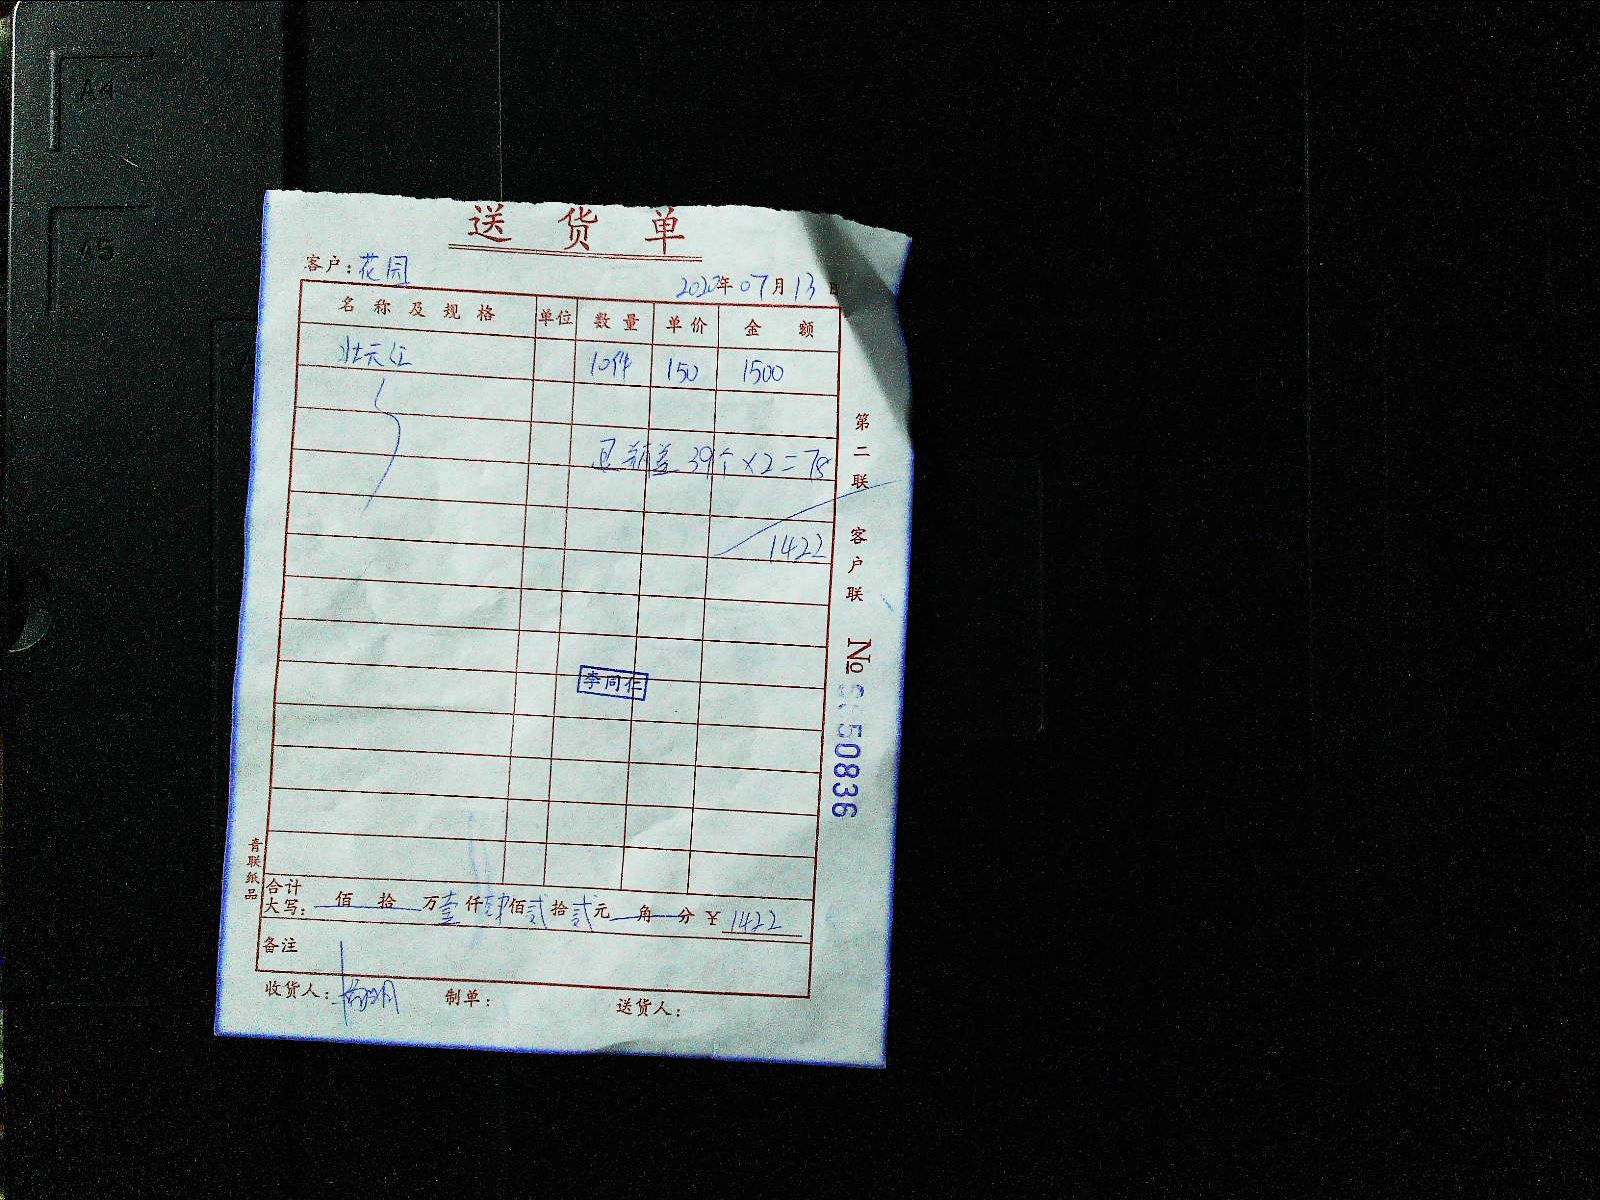 A4
A5
送货单
客户：花园
2020年07月13日
名称及规格 单位 数量 单价 金额
壮元红 10件 150 1500
39个×2=78
1422
李同仁
第二联 客户联
№ 50836
青联纸品
合计
大写： 佰 拾 万壹仟肆佰贰拾贰元 角 分 ¥1422
备注
收货人： 制单： 送货人：